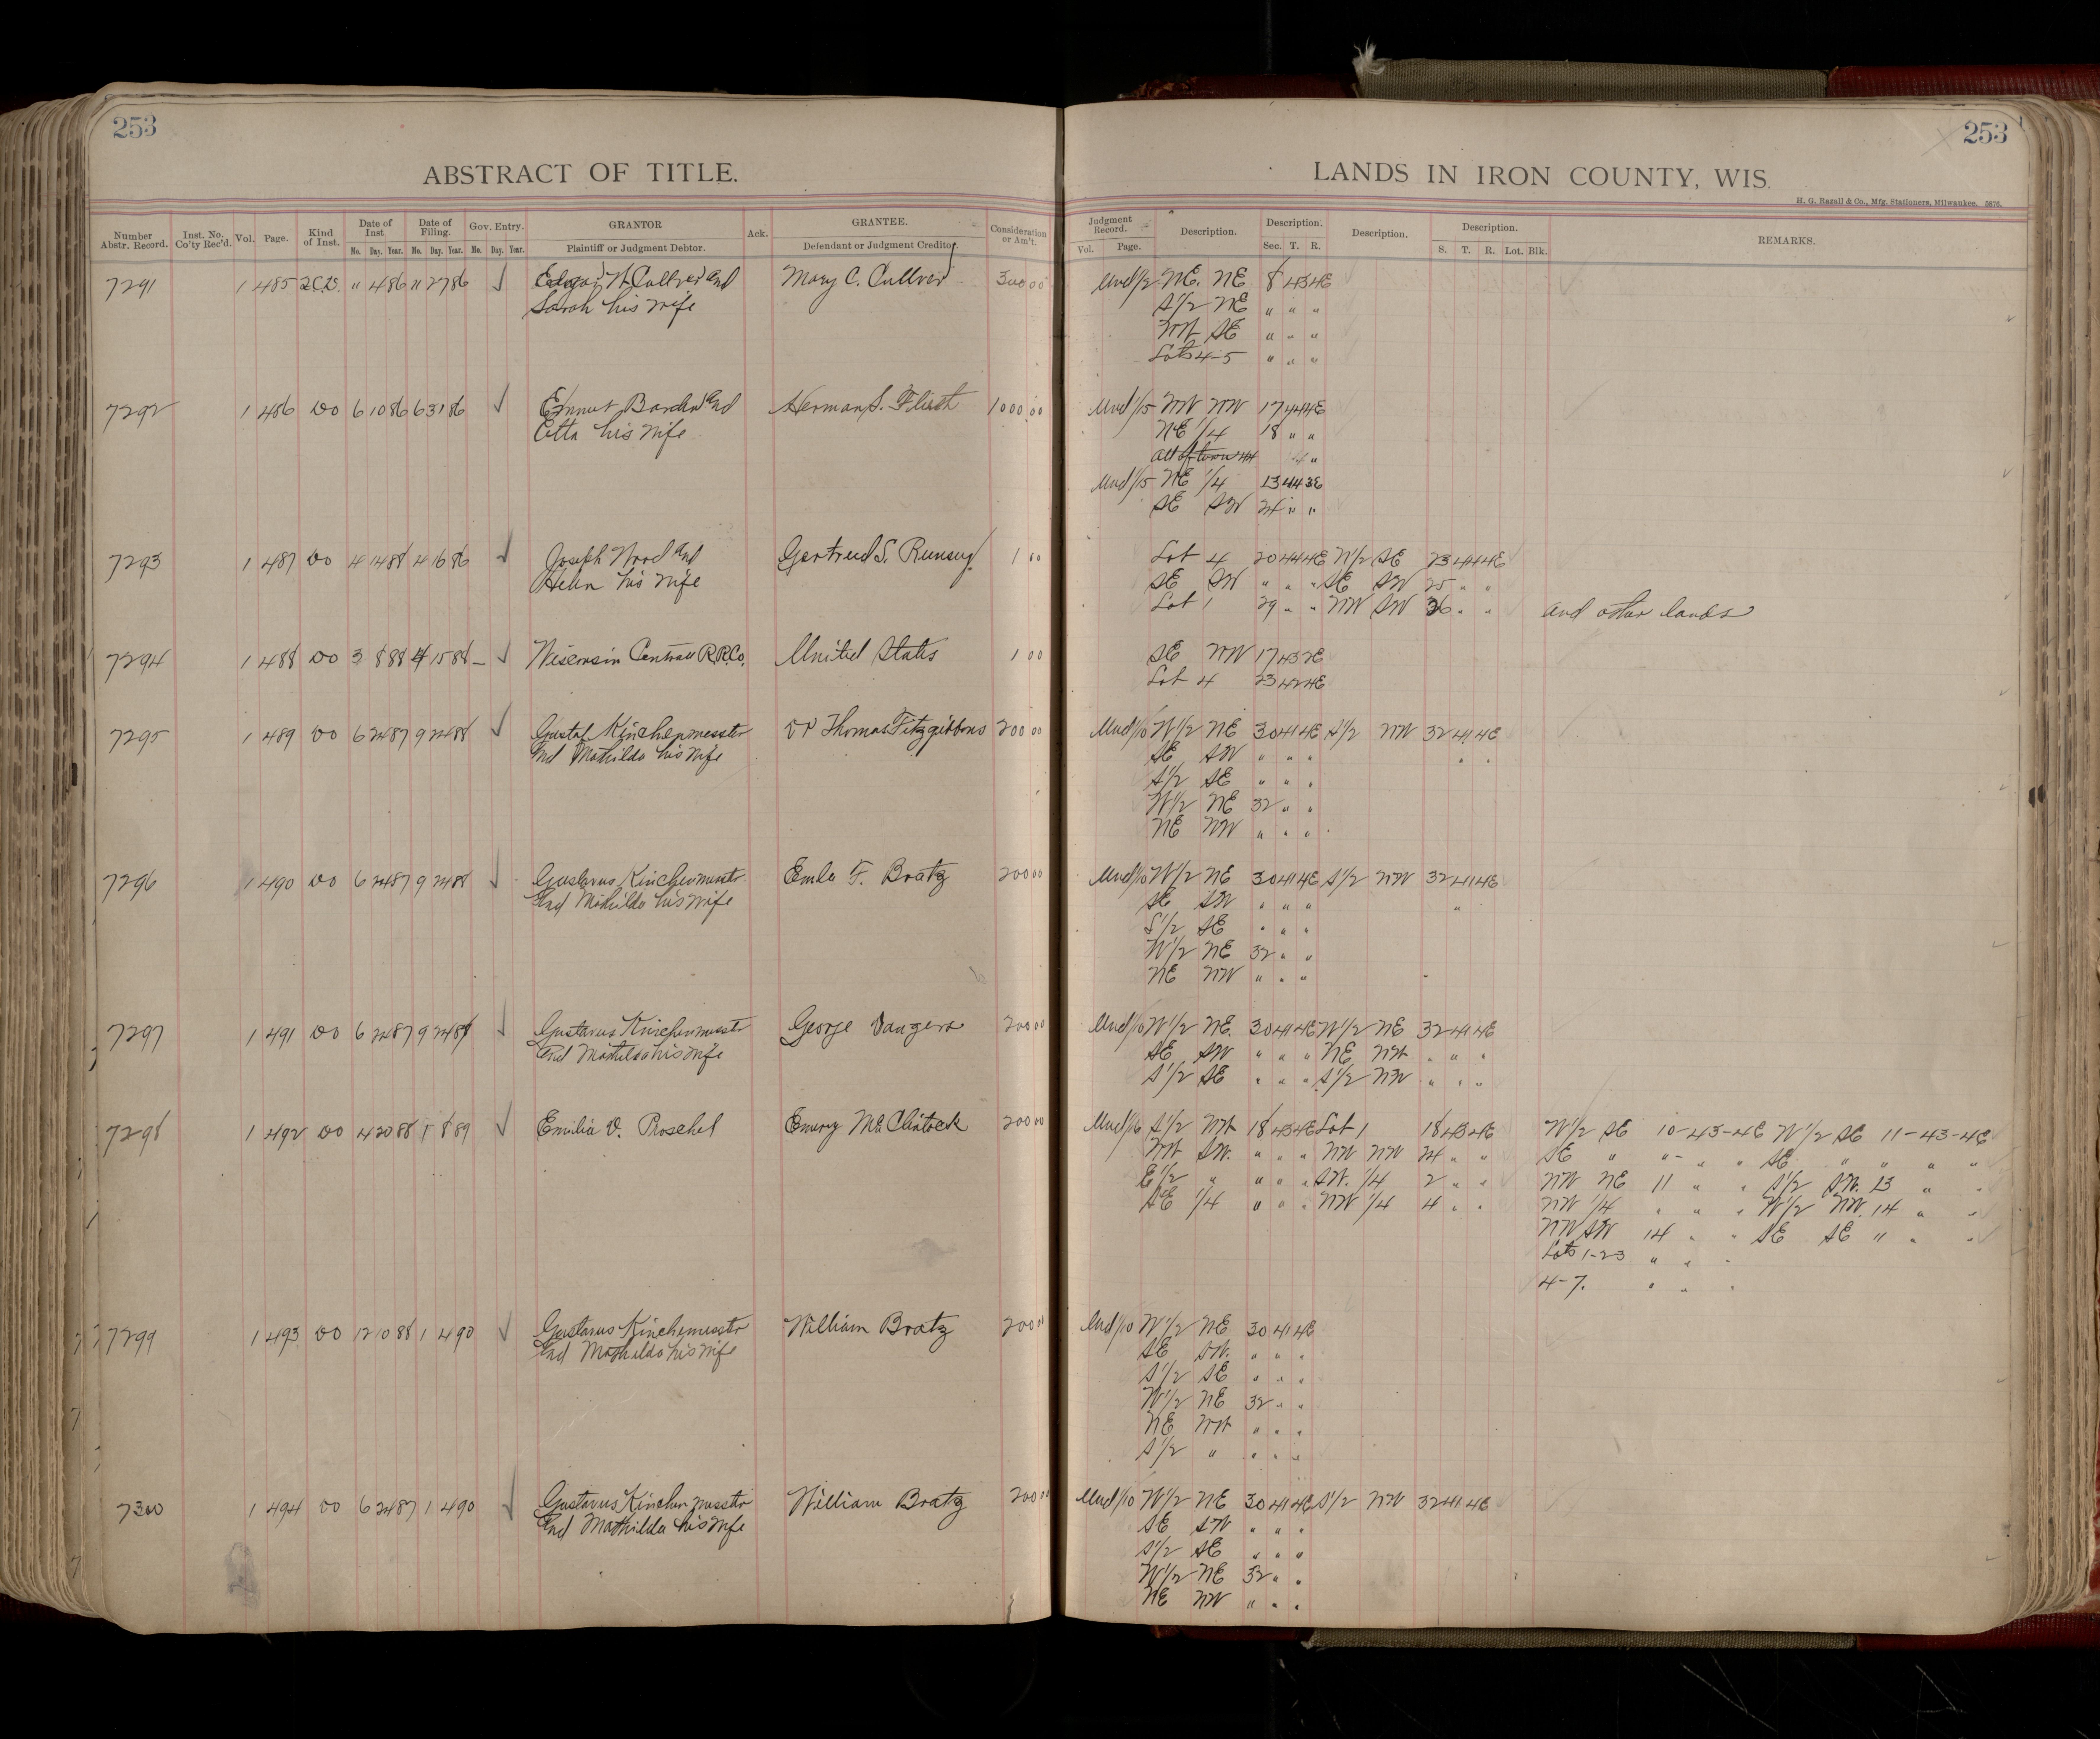 253
253
ABSTRACT OF TITLE.
LANDS IN IRON COUNTY, WIS.
H. G. Razall & Co., Mfg. Stationers, Milwaukee. 5876.
Number Abstr. Record. Inst. No. Co'ty Rec'd. Vol. Page. Kind of Inst. Date of Inst. Date of Filing. Gov. Entry. GRANTOR Ack. GRANTEE. Consideration or Am't. Judgment Record. Description. Description. Description. Description. REMARKS.
No. Day. Year. No. Day. Year. No. Day. Year. Plaintiff or Judgment Debtor. Defendant or Judgment Creditor. Vol. Page. Sec. T. R. S. T. R. Lot. Blk.
7291 1 485 2CD " 4 86 11 27 86 and Mary C. Cullver 300 00 Und 1/2 NE. NE 8 43 4E
Sarah his wife S1/2 NE " " "
NW SE " " "
Lots 4-5 " " "
7292 1 486 DO 6 10 86 6 31 86 and Herman S. 1000 00 Und 1/15 NW NW 17 44 4E
Etta his wife NE 1/4 18 " "
all of town 44 "
Und 1/15 NE 1/4 13 44 3E
SE SW 24 " "
7293 1 487 DO 4 14 88 4 16 86 Joseph Wood and Gertrud S. 1 00 Lot 4 20 44 4E N1/2 SE 23 44 4E
Helen his wife SE SW " " " SE SW 25 " "
Lot 1 29 " " NW SW 36 " " and other lands
7294 1 488 DO 3 8 88 4 15 88 Wisconsin Central R.R.Co. United States 1 00 SE NW 17 43 2E
Lot 4 23 42 4E
7295 1 489 DO 6 24 87 9 24 88 Gustaf Kirchenmesstr Thomas Fitzgibbons 200 00 Und 1/10 W1/2 NE 30 41 4E S1/2 NW 32 41 4E
and Mathilda his wife SE SW " " " " "
S1/2 SE " " "
W1/2 NE 32 " "
NE NW " " "
7296 1 490 DO 6 24 87 9 24 88 Gustavus Kirchenmesstr F. Bratz 200 00 Und 1/10 W1/2 NE 30 41 4E S1/2 NW 32 41 4E
and Mathilda his wife SE SW " " " "
S1/2 SE " " "
W1/2 NE 32 " "
NE NW " " "
7297 1 491 DO 6 24 87 9 24 88 Gustavus Kirchenmesstr George Sangers 200 00 Und 1/10 W1/2 NE. 30 41 4E W1/2 NE 32 41 4E
and Mathilda his wife SE SW " " " NE NW " " "
S1/2 SE " " " S1/2 NW " " "
7298 1 492 DO 4 20 88 1 8 89 Emilia V. Poschel Emory McClintock 200 00 Und 1/6 S1/2 NW 18 43 4E Lot 1 18 43 4E W1/2 SE 10-43-4E W1/2 SE 11-43-4E
NW SW. " " " NW NW 24 " " SE " " " " SE " " " "
E1/2 " " " " SW. 1/4 2 " " NW NE 11 " " S1/2 SW. 13 " "
SE 1/4 " " " NW 1/4 4 " " NW 1/4 " " " W1/2 NW. 14 " "
NW SW 14 " " SE SE " " "
Lots 1-23 " " "
4-7. " " "
7299 1 493 DO 12 10 88 1 4 90 Gustavus Kirchenmesstr William Bratz 200 00 Und 1/10 W1/2 NE 30 41 4E
and Mathilda his wife SE SW. " " "
S1/2 SE " " "
W1/2 NE 32 " "
NE NW " " "
S1/2 " " " "
7300 1 494 DO 6 24 87 1 4 90 Gustavus Kirchenmesstr William Bratz 200 00 Und 1/10 W1/2 NE 30 41 4E S1/2 NW 32 41 4E
and Mathilda his wife SE SW " " "
S1/2 SE " " "
W1/2 NE 32 " "
NE NW " " "